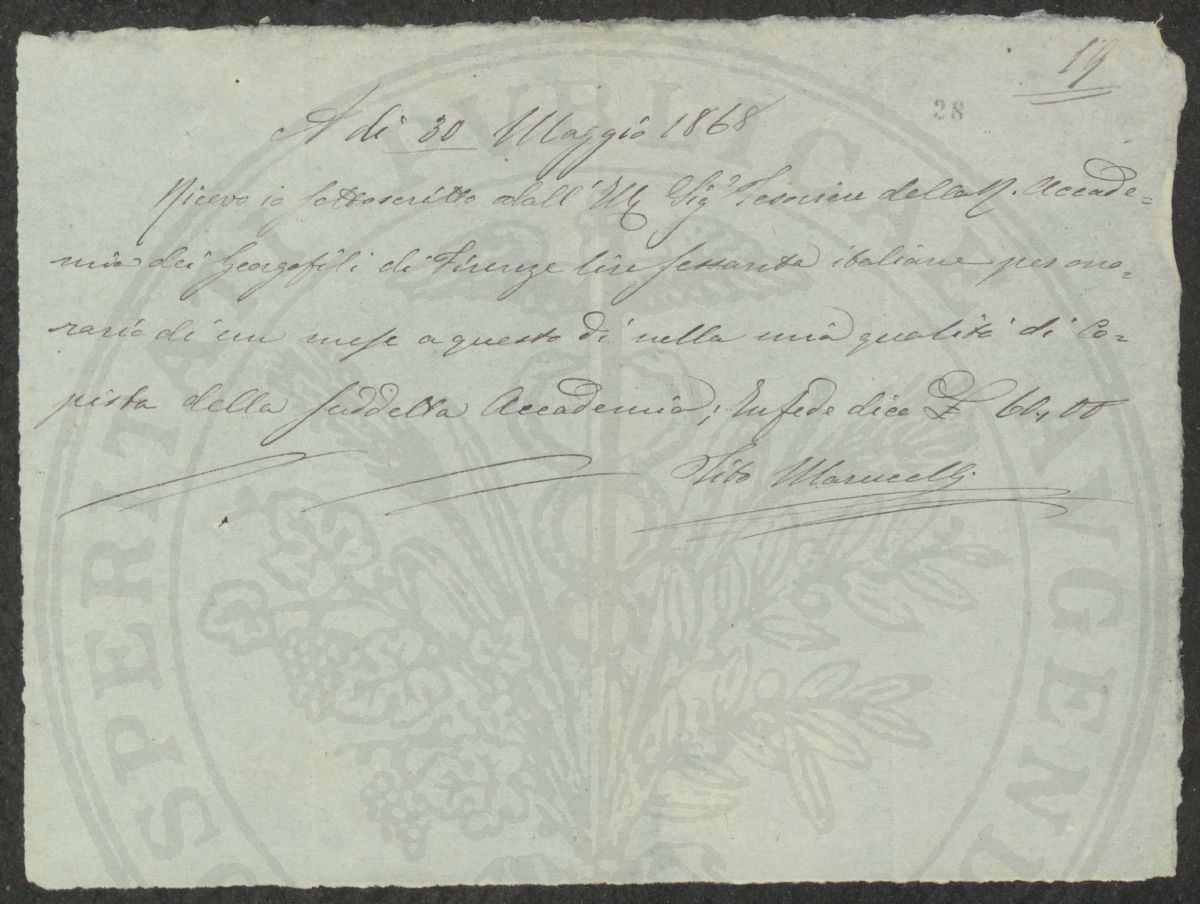 19
28
A di 30 Maggio 1868
Ricevo io sottoscritto dall' Ill. Sig. Tesoriere della R. Accade=
mia dei Georgofili di Firenze lire sessanta italiane per ono-
rario di un mese a questo dì nella mia qualità di Co-
pista della suddetta Accademia; In fede dico £ 60,00
Tito Marucelli
PROSPERITATI PVBLICAE AVGENDAE